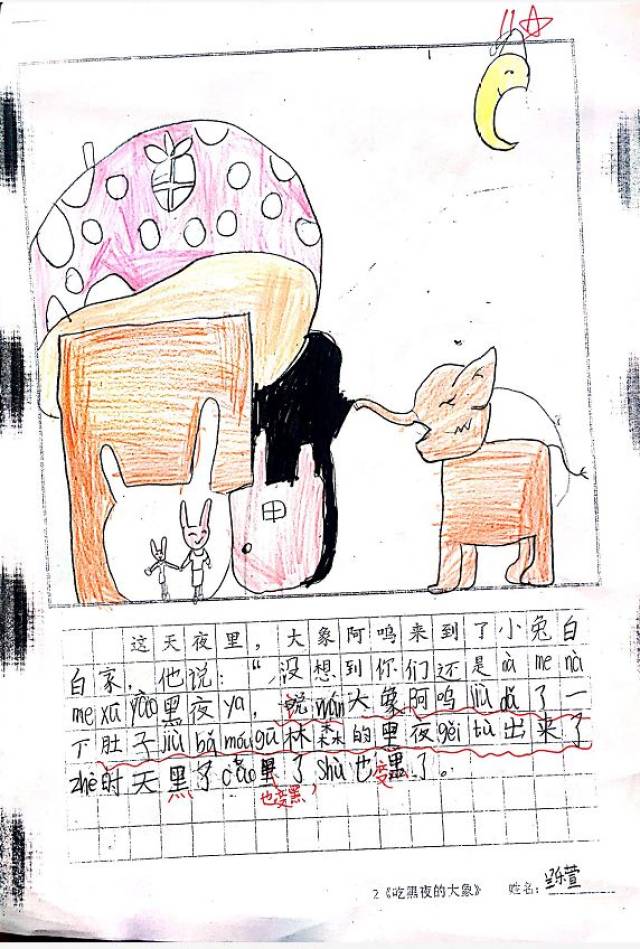 11☆
这天夜里，大象阿呜来到了小兔白
白家，他说：“没想到你们还是nà me nà
me xū yào黑夜ya，说wán大象阿呜jiù dǎ了一
下肚子jiù bǎ máu gū林森的黑夜gěi tù出来了
zhè时天黑了cǎo黑了shù也变黑了。
也变黑，
2《吃黑夜的大象》 姓名：